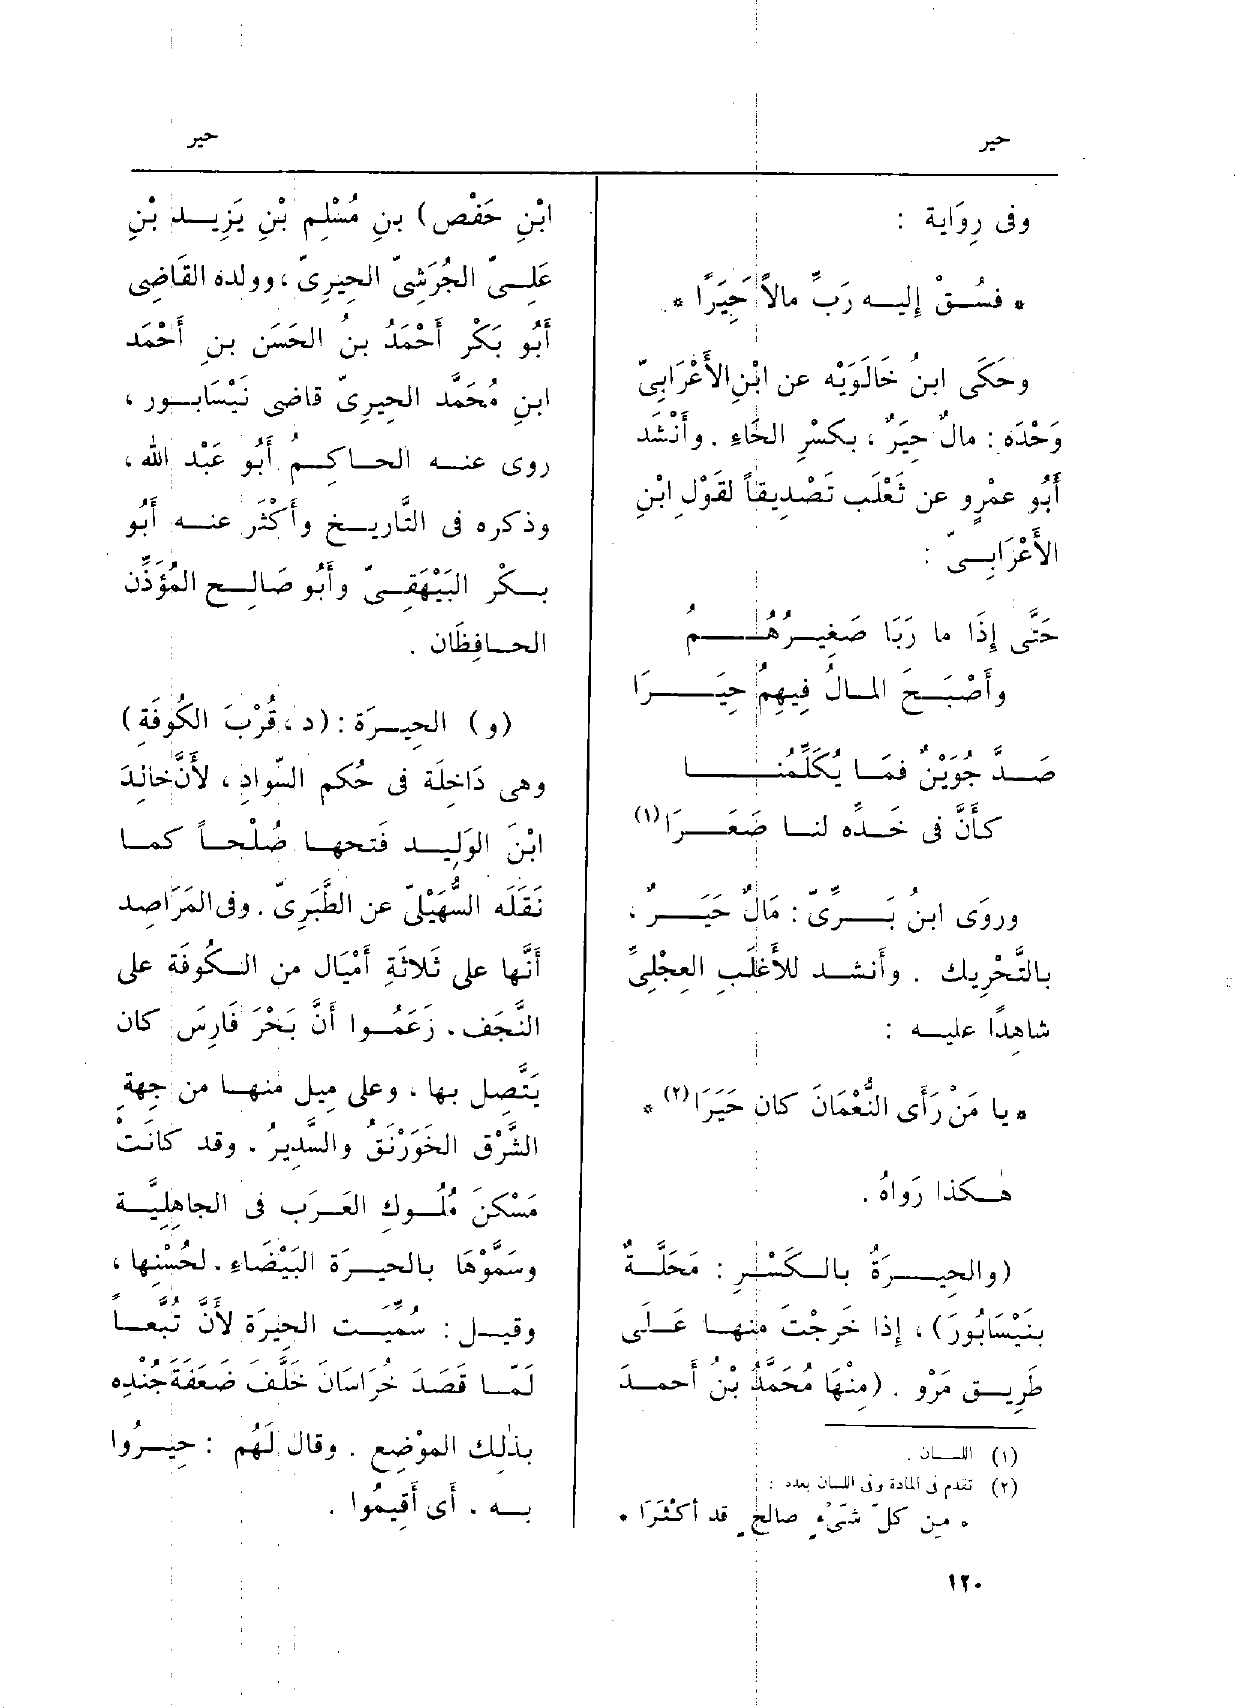 حير
حير
وفى رِوَاية :
* فسُقْ إليـه رَبِّ مالاً حِيَرًا *
وحَكَى ابنُ خَالَوَيْه عن ابْنِ الأَعْرَابِىّ
وَحْدَه : مالٌ حِيَرٌ ، بكسْرِ الحَاءِ . وأَنْشَد
أَبُو عمْرٍو عن ثَعْلَب تَصْدِيقاً لقَوْلِ ابْنِ
الأَعْرَابِـىّ :
حَتَّى إِذَا ما رَبَا صَغِيـرُهُـمُ
وأَصْبَـحَ المـالُ فِيهِمُ حِيَـرَا
صَـدَّ جُوَيْنٌ فَمَـا يُكَلِّمُنـا
كأَنَّ فى خَـدِّه لنـا صَعَـرَا(١)
وروَى ابنُ بَـرِّىّ : مَالٌ حَيَـرٌ ،
بالتَّحْرِيك . وأَنشـد للأَغلَبِ العِجْلِىِّ
شاهِدًا عليـه :
* يا مَنْ رَأَى النُّعْمَانَ كان حَيَرَا(٢) *
هٰـكذا رَواهُ .
(والحِيـرَةُ بالـكَسْـرِ : مَحَلَّـةٌ
بنَيْسَابُورَ) ، إِذا خَرجْتَ منهـا عَـلَى
طَرِيـق مَرْو . (مِنْهَا مُحَمَّدُ بْنُ أَحمـدَ
(١) اللسـان .
(٢) تقدم فى المادة وفى اللسان بعده :
* مِن كلّ شَىْءٍ صالحٍ قد أَكْثَرَا *
١٢٠
ابْنِ حَفْص) بنِ مُسْلِمِ بْنِ يَزِيـد بْنِ
عَلِـىّ الجُرَشِىّ الحِيرِىّ ، وولده القَاضِى
أَبُو بَكْر أَحْمَدُ بنُ الحَسَن بنِ أَحْمَد
ابنِ مُحَمَّد الحِيرِىّ قاضى نَيْسَابـور ،
روى عنـه الحـاكِـمُ أَبُو عَبْد الله ،
وذكره فى التَّارِيـخ وأَكْثَر عنـه أَبُو
بـكْر البَيْهَقِـىّ وأَبُو صَالِـح المُؤَذِّن
الحـافِظَان .
(و) الحِيـرَة : (د ، قُرْبَ الكُوفَةِ)
وهى دَاخِلَة فى حُكم السَّوادِ ، لأَنَّ خالِدَ
ابْنَ الوَلِيـد فَتحهـا صُلْحـاً كمـا
نَقَلَه السُّهَيْلِىّ عن الطَّبَرِىّ . وفى المَرَاصِد
أَنَّها على ثَلاثَةِ أَمْيَال من الـكُوفَة على
النَّجَف . زَعَمُـوا أَنَّ بَحْرَ فَارِسَ كان
يَتَّصِل بها ، وعلى مِيل منهـا من جِهَةِ
الشَّرْق الخَوَرْنَقُ والسَّدِيرُ . وقد كانَتْ
مَسْكنَ مُلُـوكِ العَرَب فى الجاهِلِيَّـة
وسَمَّوْهَا بالحِيـرَة البَيْضَاءِ . لحُسْنِها ،
وقيـل : سُمِّيَـت الحِيرَة لأَنَّ تُبَّعـاً
لَمّـا قَصَدَ خُرَاسَانَ خَلَّف ضَعَفَةَ جُنْدِه
بذٰلِك الموْضِعِ . وقال لَهُم : حِيـرُوا
بـه . أَى أَقِيمُوا .